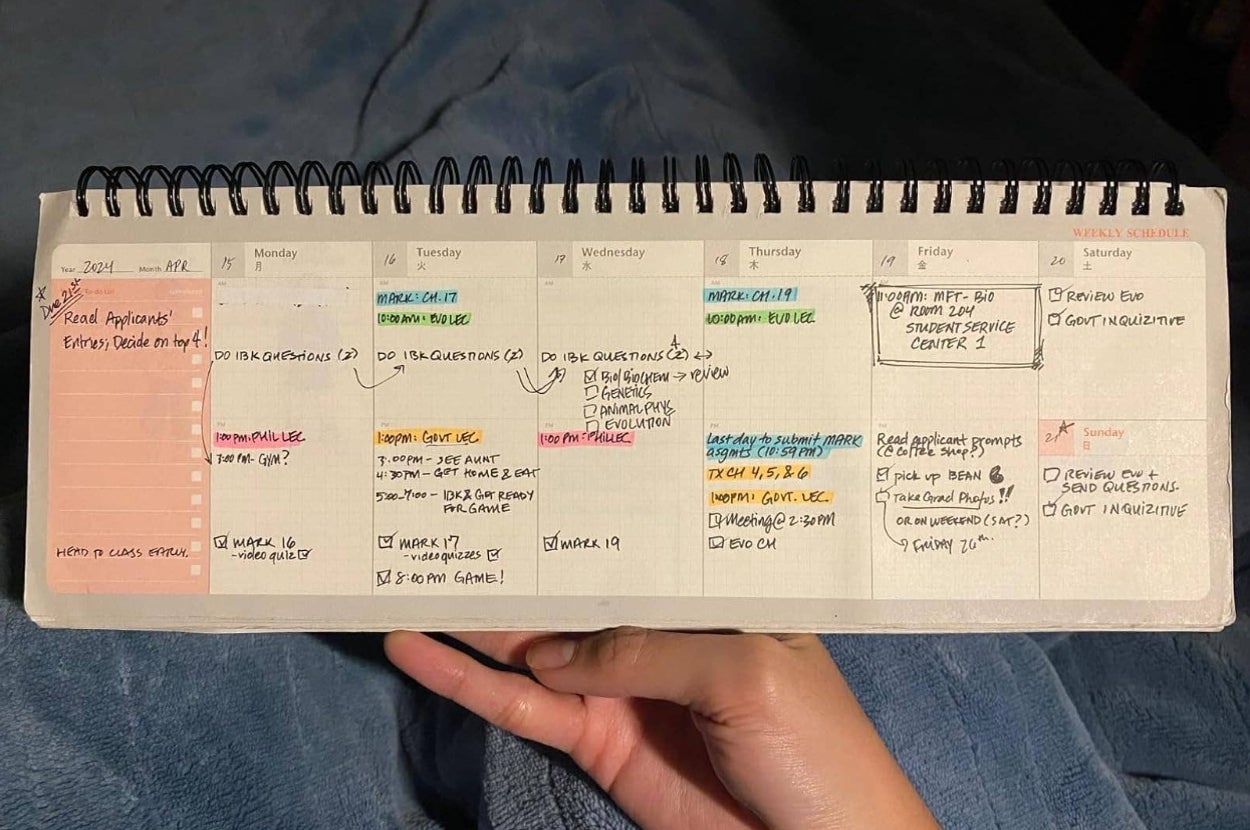 WEEKLY SCHEDULE
Year 2024 Month APR
* Due 21st
To-do List
Read Applicants'
Entries; Decide on top 4!
HEAD TO CLASS EARLY.
15 Monday
月
AM
DO IBK QUESTIONS (2)
PM
1:00 PM: PHIL LEC
3:00 PM- GYM?
MARK 16
-video quiz
16 Tuesday
火
AM
MARK: CH. 17
10:00 AM: EVO LEC
DO IBK QUESTIONS (2)
PM
1:00PM: GOVT LEC
3:00PM- SEE AUNT
4:30PM- GET HOME & EAT
5:00-7:00 - IBK & GET READY
FOR GAME
MARK 17
-video quizzes
8:00 PM GAME!
17 Wednesday
水
AM
4
DO IBK QUESTIONS (2) ↔
BIO/BIOCHEM → review
GENETICS
ANIMAL PHYS
EVOLUTION
1:00 PM: PHIL LEC
MARK 19
18 Thursday
木
AM
MARK: CH. 19
10:00AM: EVO LEC
PM
Last day to submit MARK
asgmts (10:59 PM)
TX CH 4, 5, & 6
1:00PM: GOVT. LEC
Meeting @ 2:30PM
EVO CH
19 Friday
金
11:00AM: MFT- BIO
@ ROOM 204
STUDENT SERVICE
CENTER 1
PM
Read applicant prompts
(@ coffee shop?)
pick up BEAN
Take Grad Photos!!
OR ON WEEKEND (SAT?)
→ FRIDAY 26th.
20 Saturday
土
REVIEW EVO
GOVT INQUIZITIVE
21 Sunday
日
REVIEW EVO +
SEND QUESTIONS.
GOVT INQUIZITIVE